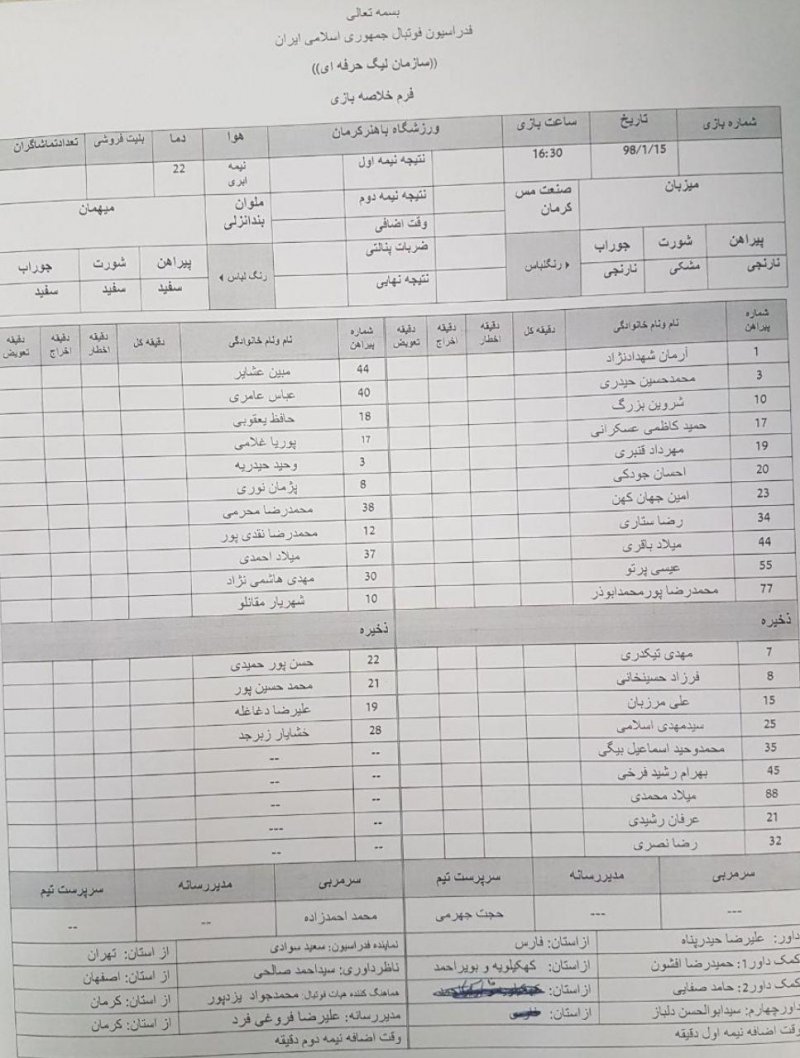 بسمه تعالی
فدراسیون فوتبال جمهوری اسلامی ایران
((سازمان لیگ حرفه ای))
فرم خلاصه بازی
شماره بازی تاریخ ساعت بازی ورزشگاه باهنرکرمان هوا دما بلیت فروشی تعدادتماشاگران
98/1/15 16:30 نتیجه نیمه اول نیمه ابری 22
میزبان صنعت مس کرمان نتیجه نیمه دوم ملوان بندانزلی میهمان
وقت اضافی
پیراهن شورت جوراب رنگلباس ضربات پنالتی رنگ لباس پیراهن شورت جوراب
نارنجی مشکی نارنجی نتیجه نهایی سفید سفید سفید
شماره پیراهن نام ونام خانوادگی دقیقه کل دقیقه اخطار دقیقه اخراج دقیقه تعویض شماره پیراهن نام ونام خانوادگی دقیقه کل دقیقه اخطار دقیقه اخراج دقیقه تعویض
1 آرمان شهدادنژاد 44 مبین عشایر
3 محمدحسین حیدری 40 عباس عامری
10 شروین بزرگ 18 حافظ یعقوبی
17 حمید کاظمی عسکرانی 17 پوریا غلامی
19 مهرداد قنبری 3 وحید حیدریه
20 احسان جودکی 8 پژمان نوری
23 امین جهان کهن 38 محمدرضا محرمی
34 رضا ستاری 12 محمدرضا نقدی پور
44 میلاد باقری 37 میلاد احمدی
55 عیسی پرتو 30 مهدی هاشمی نژاد
77 محمدرضا پورمحمدابوذر 10 شهریار مقانلو
ذخیره ذخیره
7 مهدی تیکدری 22 حسن پور حمیدی
8 فرزاد حسینخانی 21 محمد حسین پور
15 علی مرزبان 19 علیرضا دغاغله
25 سیدمهدی اسلامی 28 خشایار زبرجد
35 محمدوحید اسماعیل بیگی --
45 بهرام رشید فرخی --
88 میلاد محمدی --
21 عرفان رشیدی ---
32 رضا نصری --
سرمربی مدیررسانه سرپرست تیم سرمربی مدیررسانه سرپرست تیم
--- --- حجت جهرمی محمد احمدزاده -- --
داور: علیرضا حیدرپناه ازاستان: فارس نماینده فدراسیون: سعید سوادی از استان: تهران
کمک داور1: حمیدرضا افشون ازاستان: کهکیلویه و بویراحمد ناظرداوری: سیداحمد صالحی از استان: اصفهان
کمک داور2: حامد صفایی ازاستان: هماهنگ کننده هیات فوتبال: محمدجواد یزدپور از استان: کرمان
داورچهارم: سیدابوالحسن دلباز ازاستان: مدیررسانه: علیرضا فروغی فرد از استان: کرمان
وقت اضافه نیمه اول دقیقه وقت اضافه نیمه دوم دقیقه